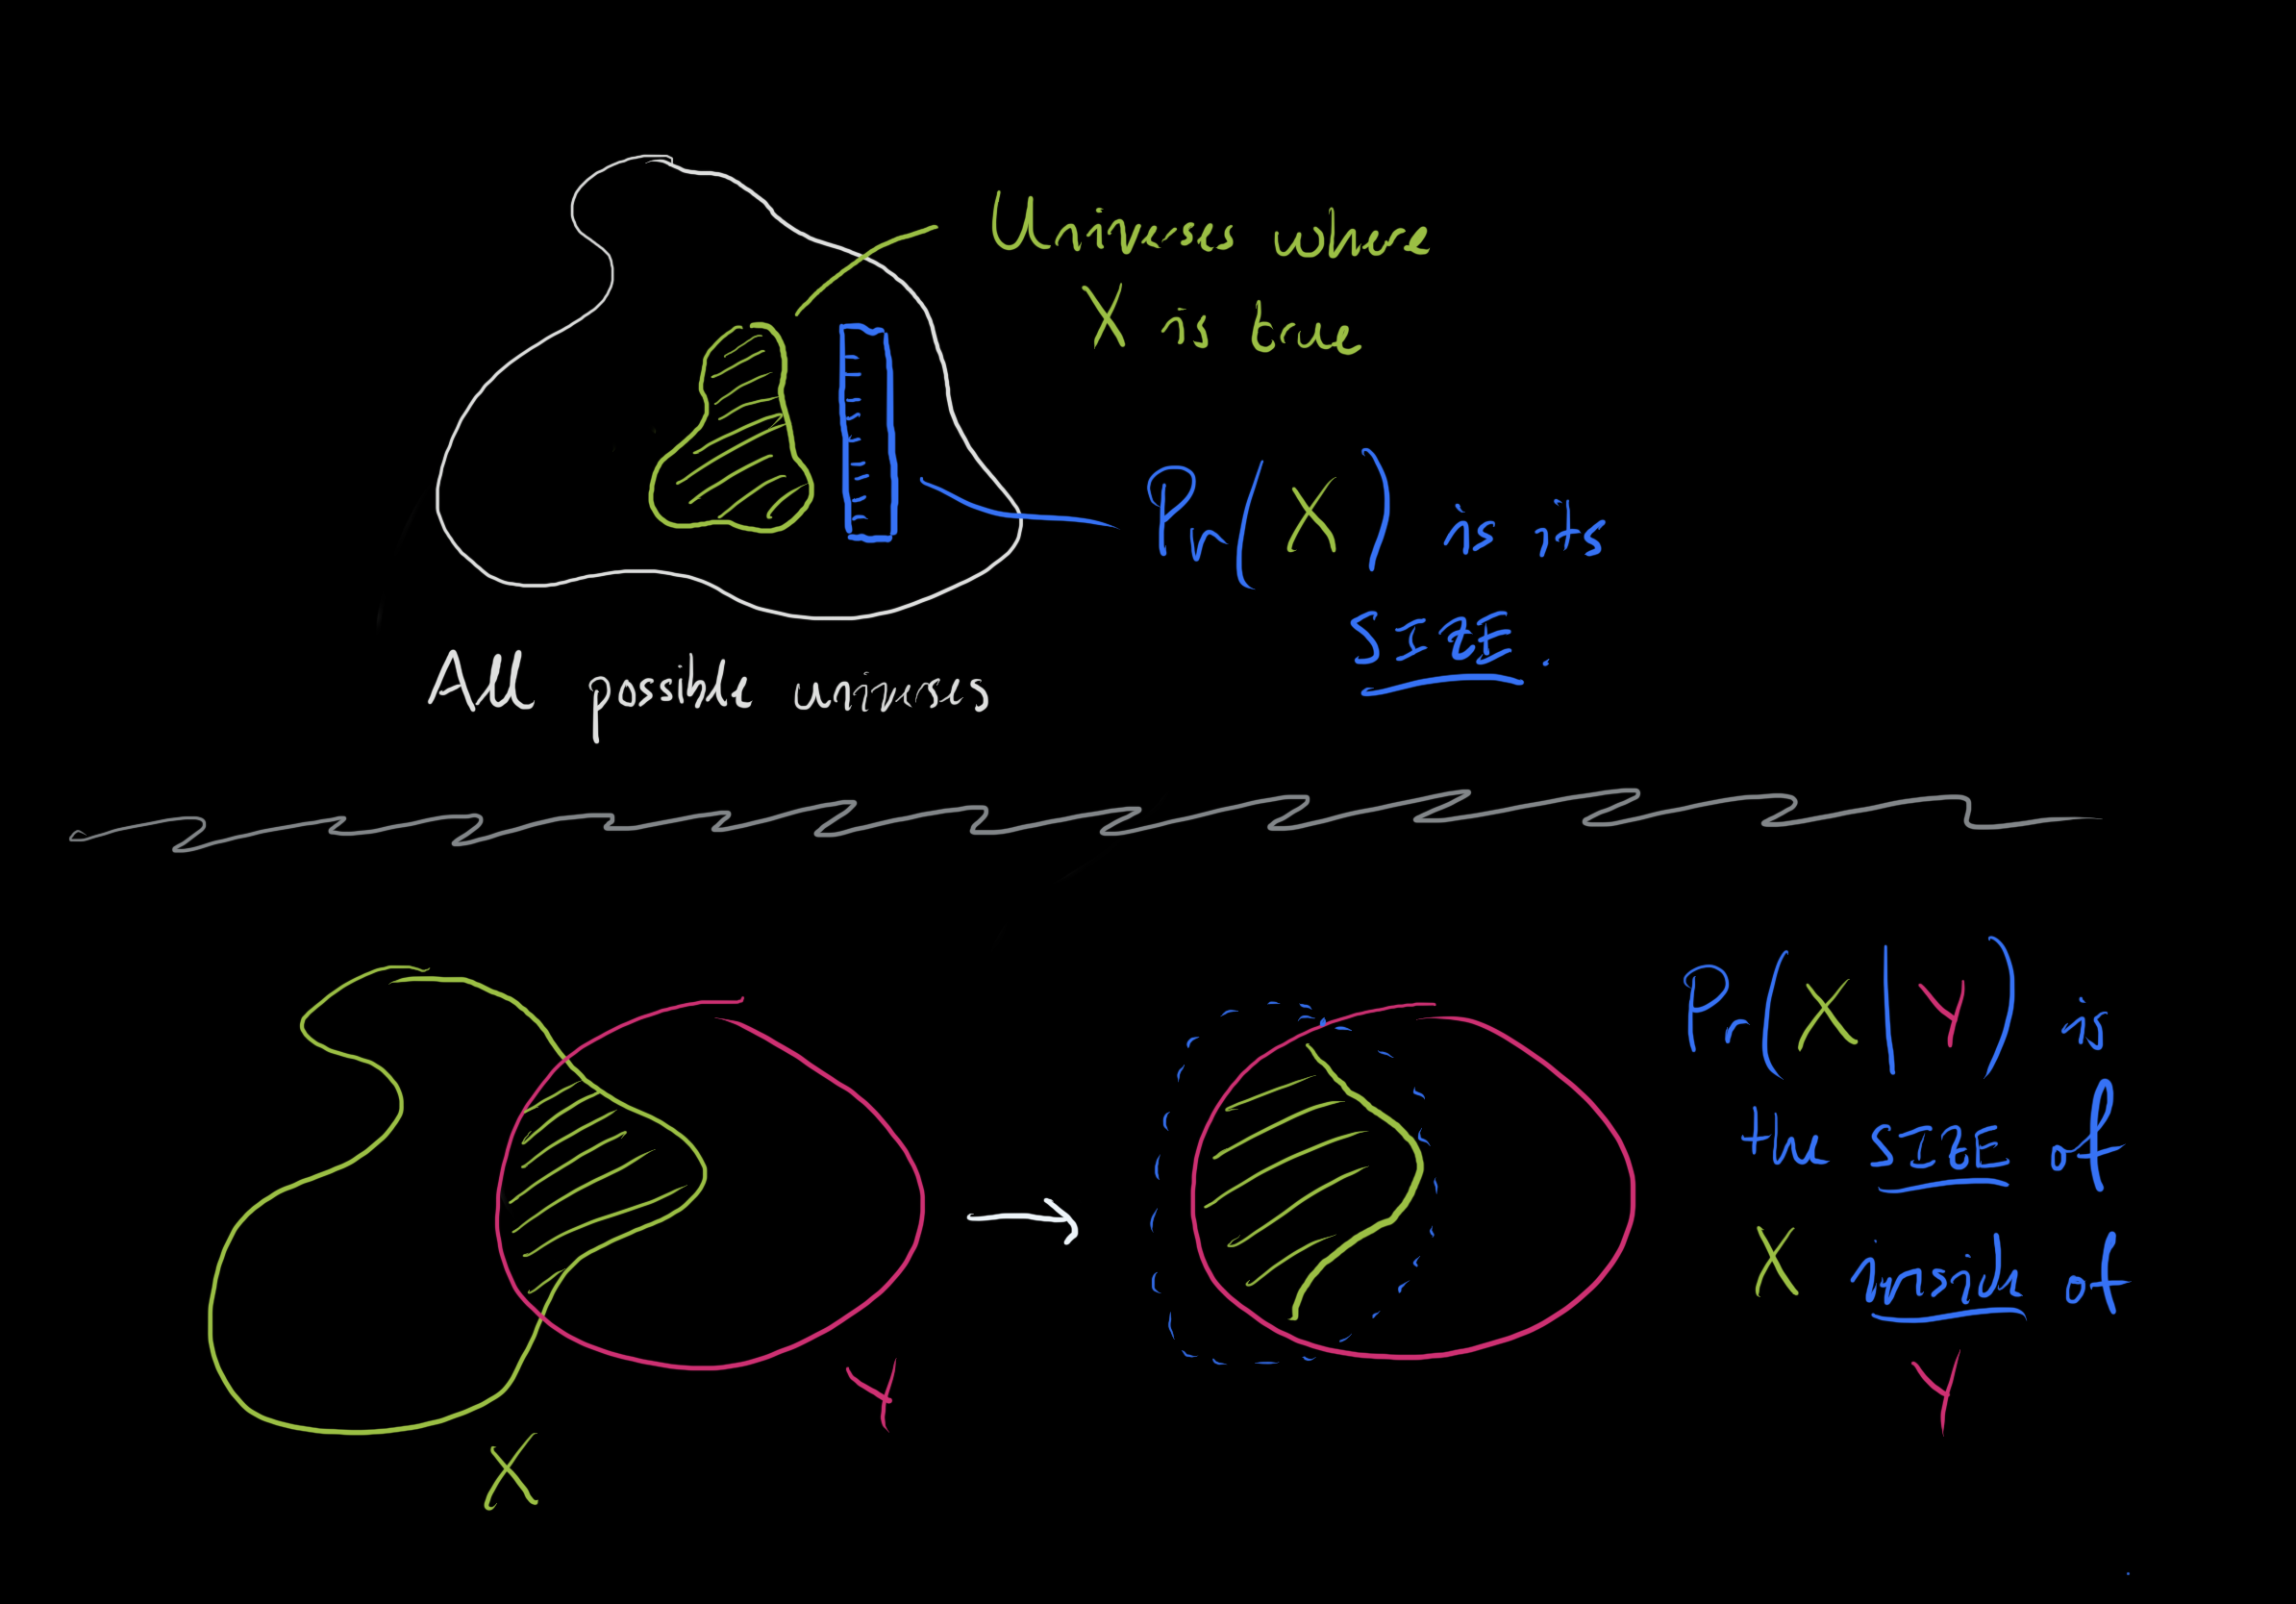 Universes where
X is true
Pr(X) is its
SIZE.
All possible universes
Pr(X|Y) is
the SIZE of
X inside of
Y
Y
X